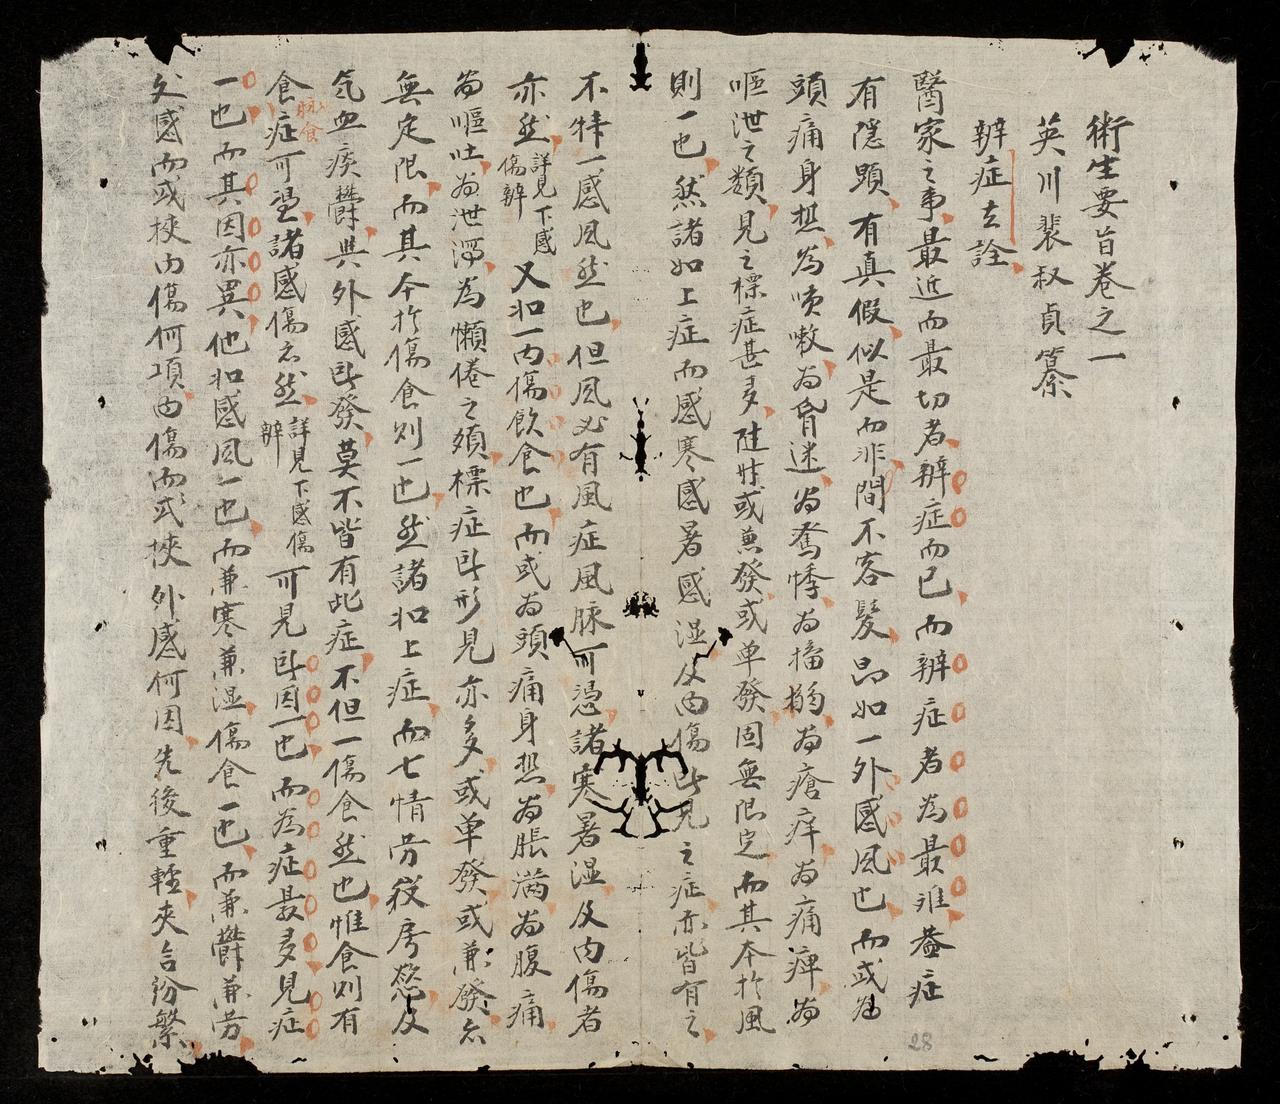 術生要旨卷之一
英川裴叔貞纂
辨症玄詮
醫家之事最近而最切者辨症而已而辨症者為最难蓋症
有隱顕有真假似是而非間不容髮品如一外感风也而或為
頭痛身热為咳嗽為昏迷為驚悸為搐搦為瘡痒為痛痺為
嘔泄之類見之標症甚多陡然或兼發或单發固無限定而其本於風
則一也然諸如上症而感寒感暑感湿及内傷此見之症亦皆有之
不特一感风然也但风必有風症風脉可憑諸寒暑湿及内傷者
亦然詳見下感傷辨又如一内傷飲食也而或為頭痛身热為脹满為腹痛
為嘔吐為泄瀉為懶倦之類標症卧形見亦多或单發或兼發亦
無定限而其本於傷食则一也然諸如上症而七情劳役房慾及
気血痰鬱與外感卧發莫不皆有此症不但一傷食然也惟食则有
食症脉食可憑諸感傷亦然詳見下感傷辨可見卧因一也而為症最多見症
一也而其因亦異他如感风一也而兼寒兼湿傷食一也而兼鬱兼劳
外感而或挾内傷何項内傷而或挾外感何因先後重輕夾合紛繁
28